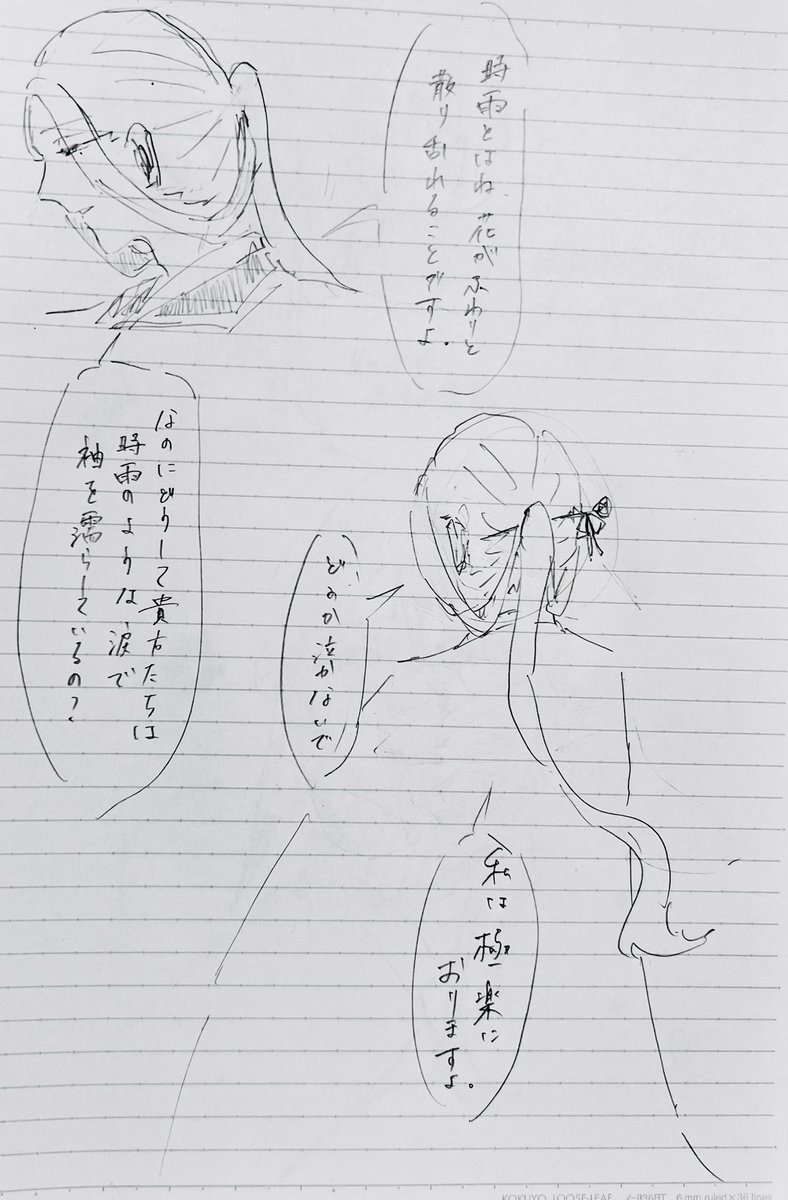 時雨とはね 花がふわりと
散り乱れることですよ。
なのにどうして貴方たちは
時雨のような涙で
袖を濡らしているの?
どうか泣かないで
私は極楽に
おりますよ。
KOKUYO LOOSE-LEAF ノ-836BT 6 mm ruled×36 lines